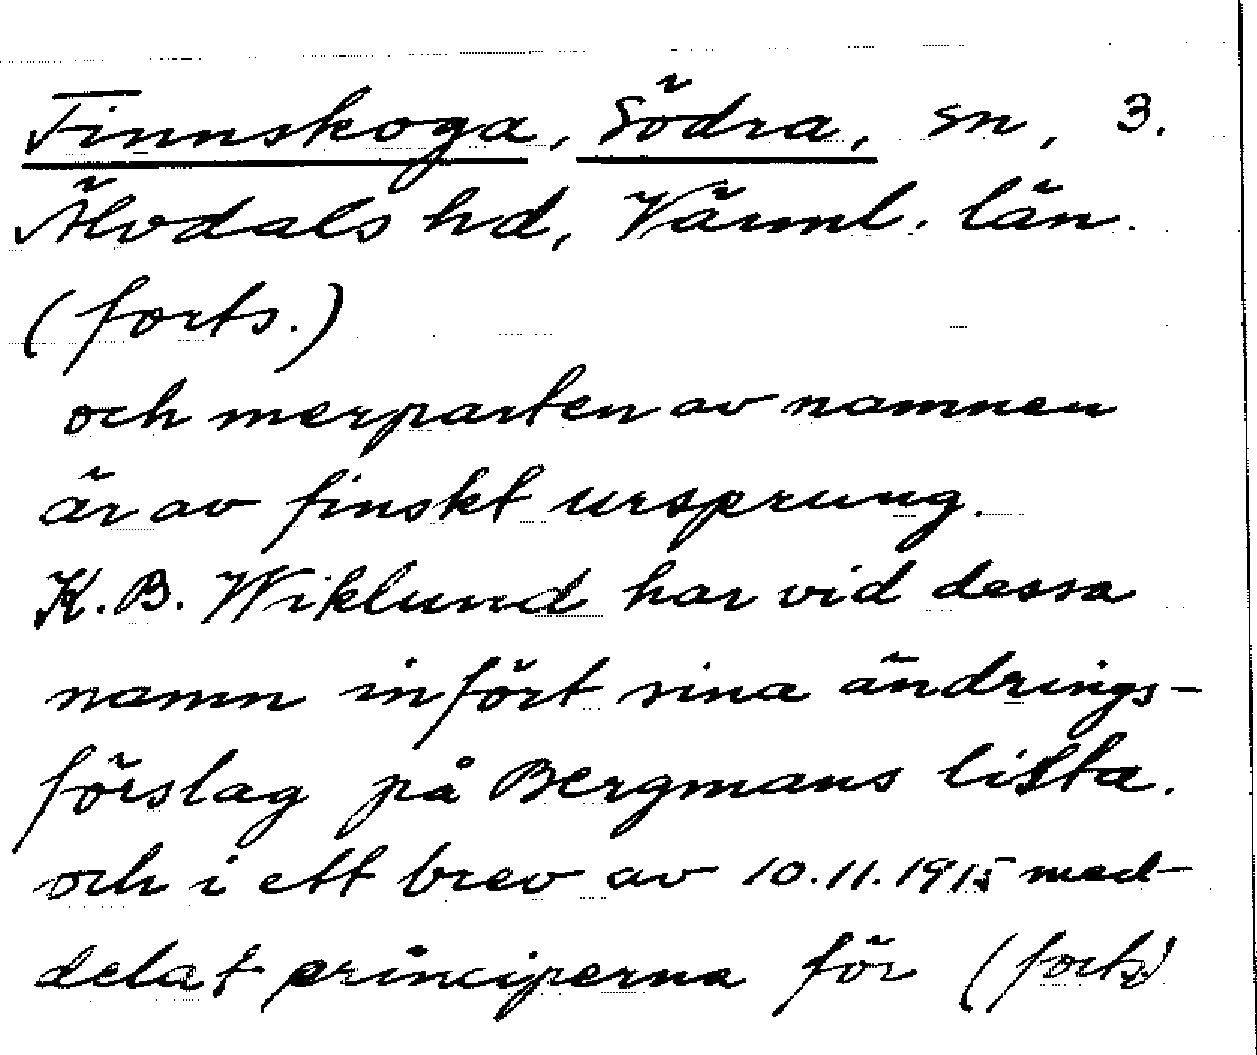 Finnskoga, Södra, sn, 3.
Älvdals hd, Värml. län.
(forts.)
och merparten av namnen
är av finskt ursprung.
K.B. Wiklund har vid dessa
namn infört sina ändrings-
förslag på Bergmans lista.
och i ett brev av 10.11.1915 med-
delat principerna för (forts)